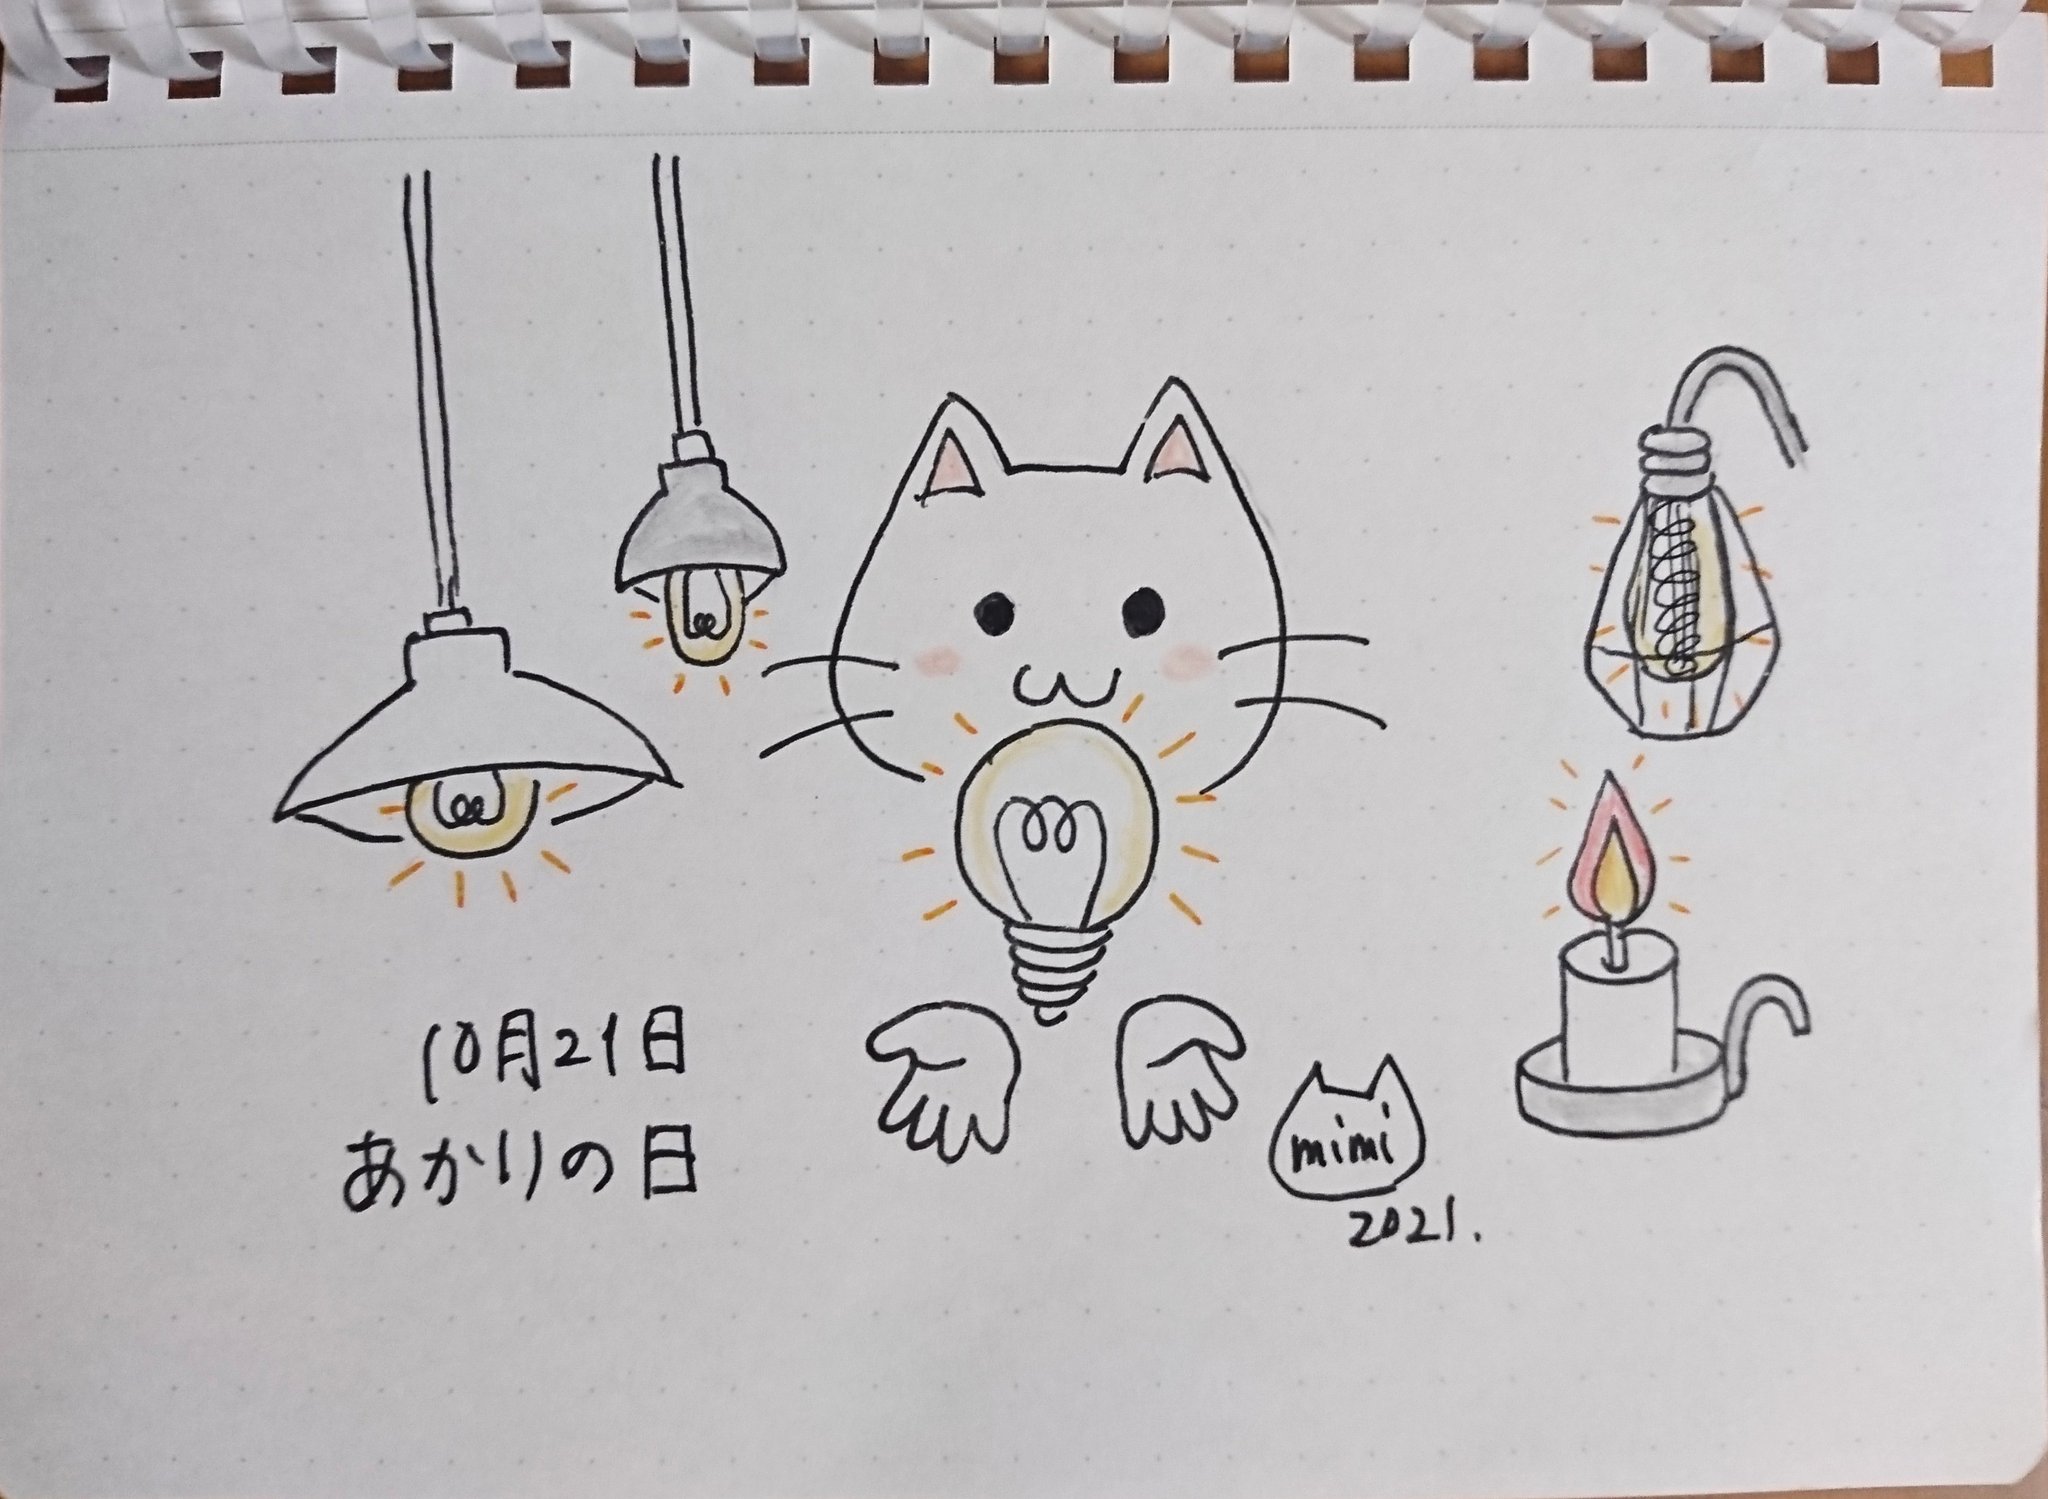 10月21日
あかりの日
mimi
2021.